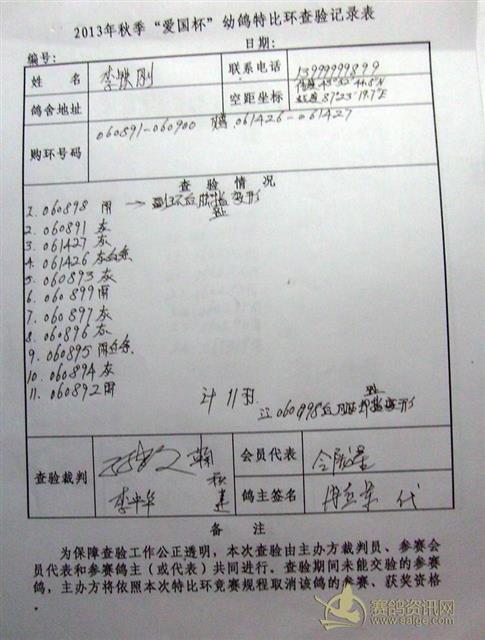 2013年秋季“爱国杯”幼鸽特比环查验记录表
编号: 日期:
姓名 李 刚 联系电话 13999999899
鸽舍地址 空距坐标 87°23′19.7″E
购环号码 060891-060900 061426-061427
查验情况
1. 060898 雨 → 变形
2. 060891 灰
3. 061427 灰
4. 061426 灰白条
5. 060893 灰
6. 060899 雨
7. 060897 灰
8. 060896 灰
9. 060895 雨白条
10. 060894 灰
11. 060892 雨
计11羽
注 060898 变形
查验裁判 李 会员代表
鸽主签名 代
备注
为保障查验工作公正透明，本次查验由主办方裁判员、参赛会
员代表和参赛鸽主（或代表）共同进行。查验期间未能交验的参赛
鸽，主办方将依照本次特比环竞赛规程取消该鸽的参赛、获奖资格
赛鸽资讯网
www.saige.com